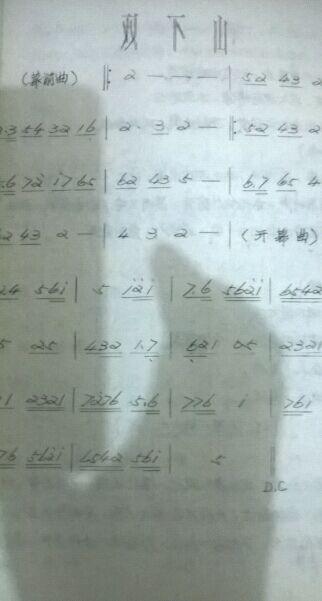 双下山
(幕前曲) ‖: 2 — — — | 52 43 2
2.3 54 32 16 | 2 . 3 2 — ‖: 52 43 2
5.6 72 i7 65 | 62 43 5 — | 6.7 65 4
62 43 2 — | 4 3 2 — | (开幕曲)
24 56i | 5 i2i | 76 562i | 6542
5 25 | 432 1.7 | 621 05 | 2321
1 2321 | 7276 5.6 | 776 i | 76i
76 562i | 6542 56i | 5 ‖
D.C